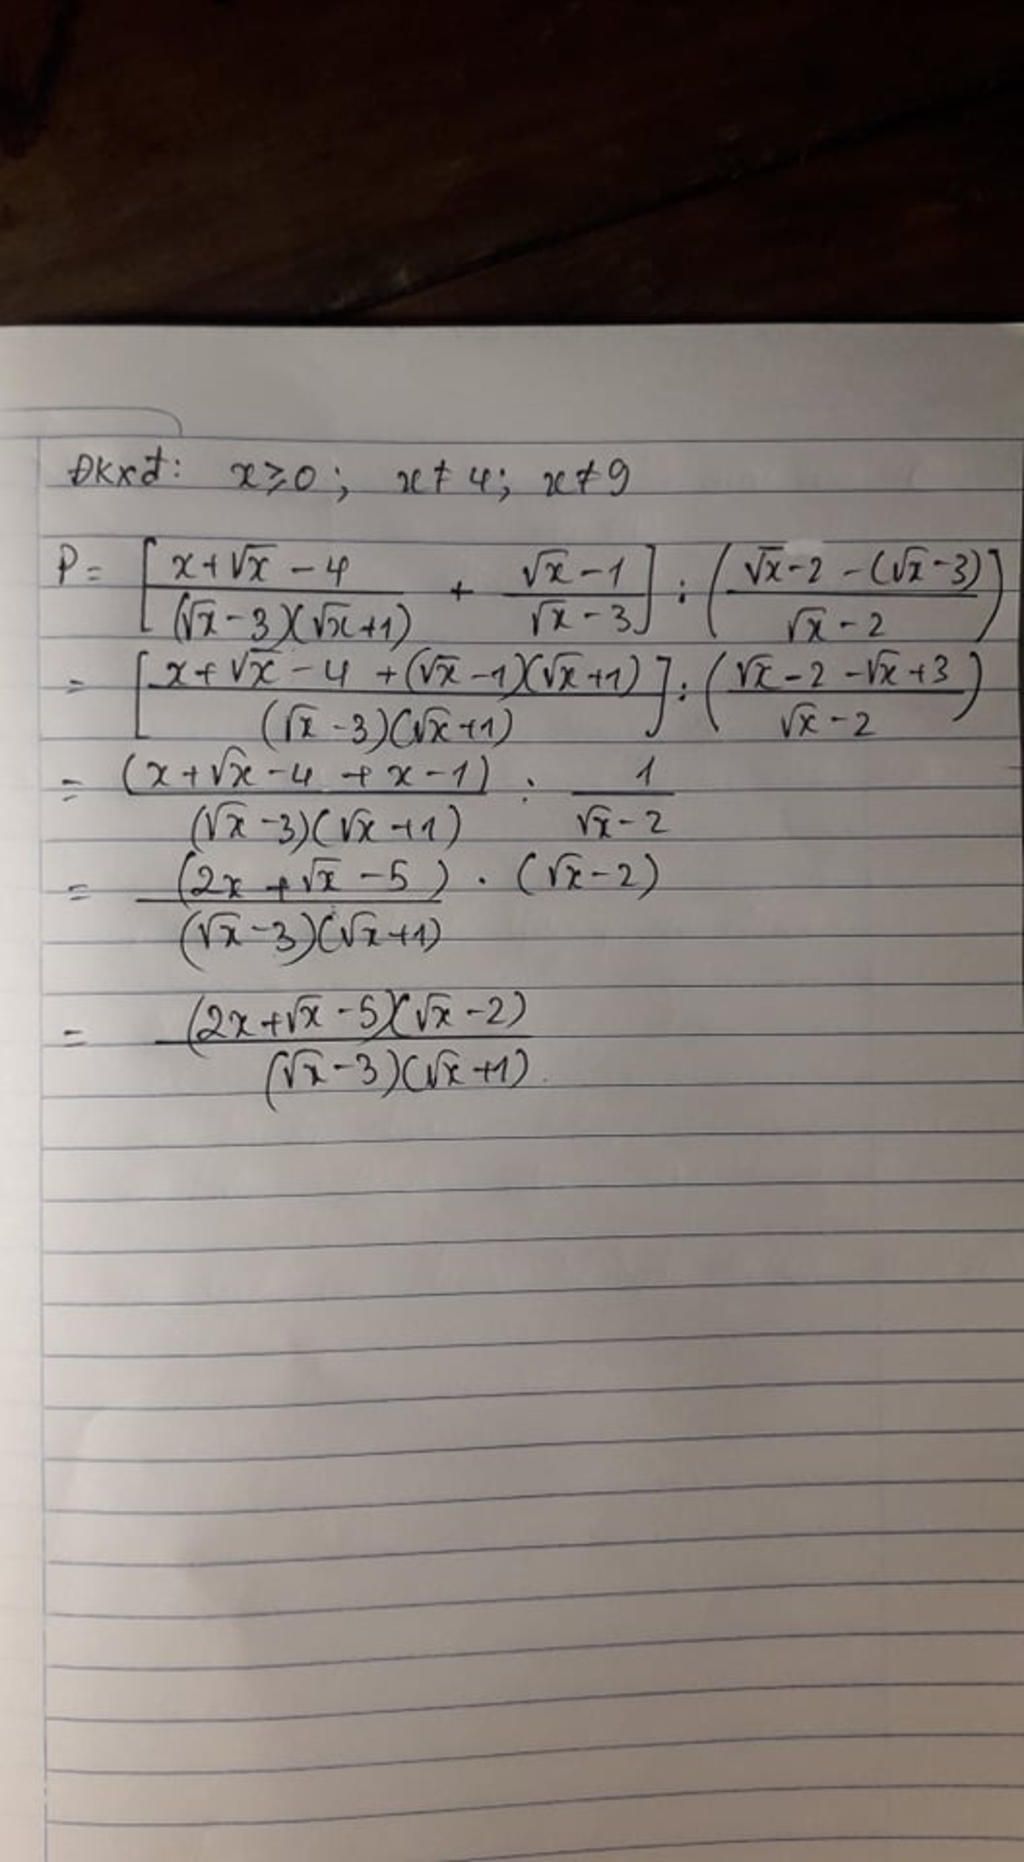 ĐKXĐ: x ≥ 0 ; x ≠ 4; x ≠ 9
P = [(x + √x - 4)/((√x - 3)(√x + 1)) + (√x - 1)/(√x - 3)] : ((√x - 2 - (√x - 3))/(√x - 2))
= [(x + √x - 4 + (√x - 1)(√x + 1))/((√x - 3)(√x + 1))] : ((√x - 2 - √x + 3)/(√x - 2))
= (x + √x - 4 + x - 1)/((√x - 3)(√x + 1)) : 1/(√x - 2)
= (2x + √x - 5)/((√x - 3)(√x + 1)) . (√x - 2)
= (2x + √x - 5)(√x - 2)/((√x - 3)(√x + 1)).